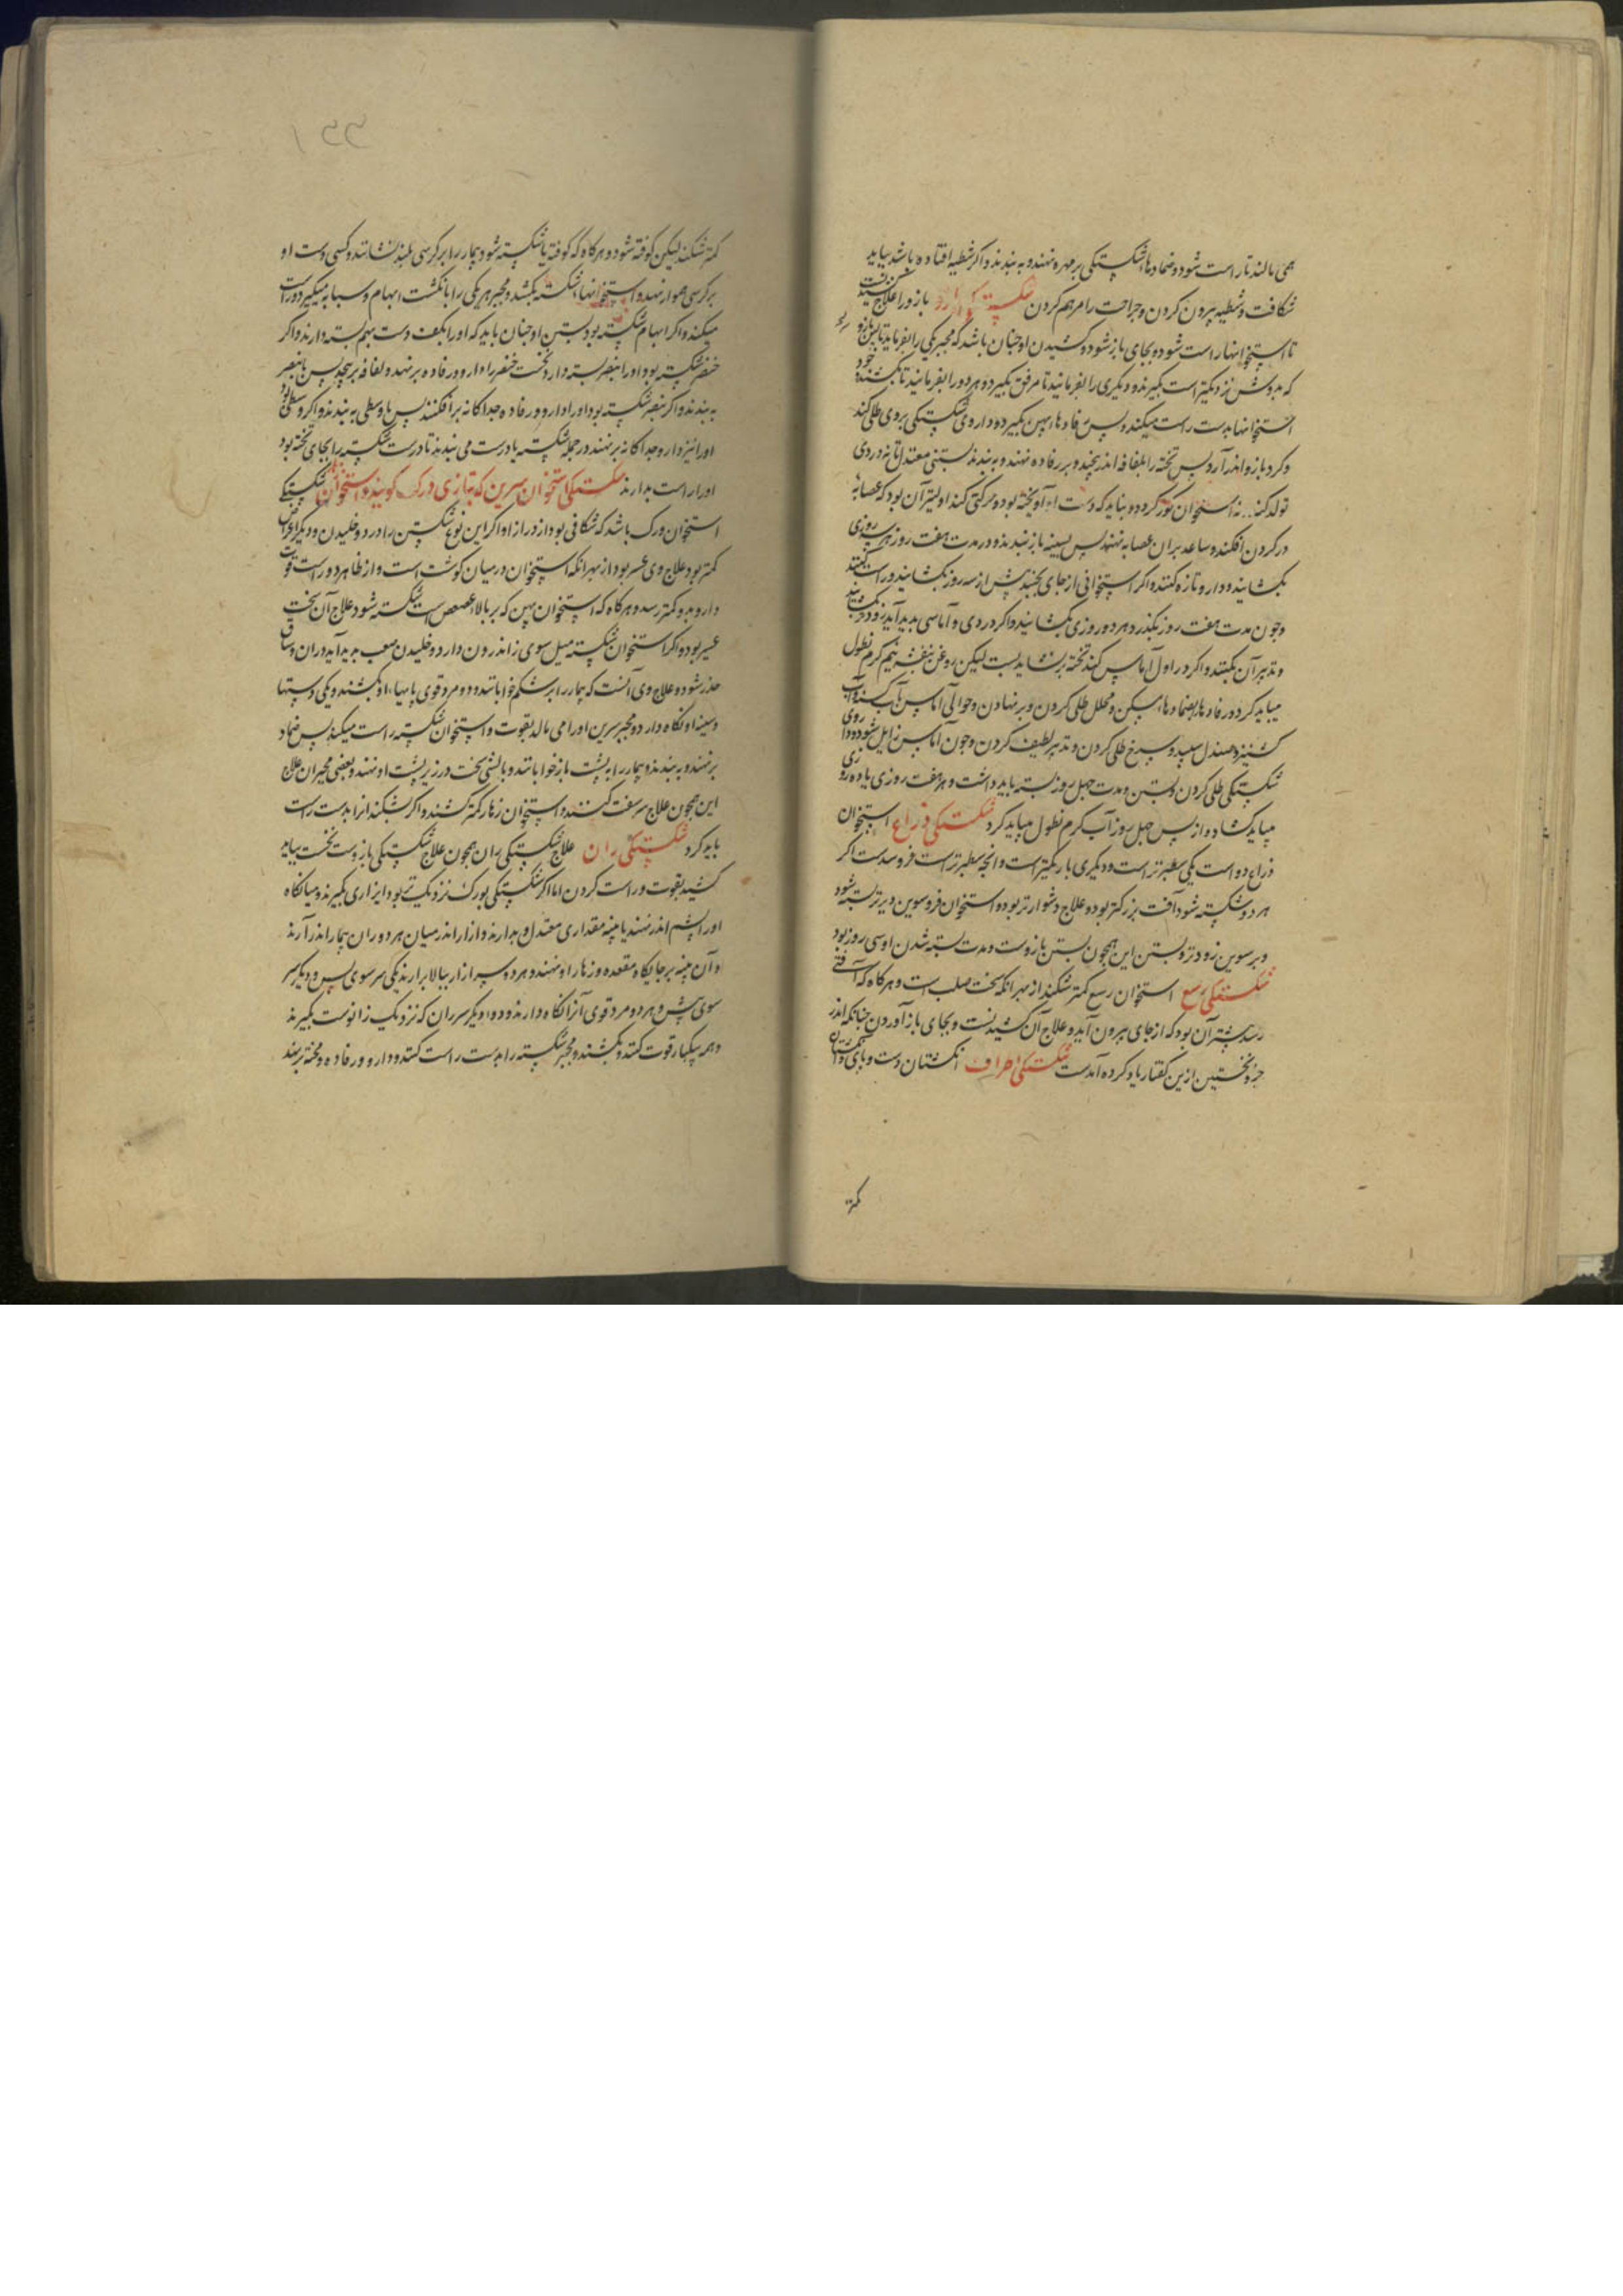 همی مالند تا راست شود و ضمادها شکستکی بر مهره نهند و به بندند و اکر شظیه افتاده باشد بباید
شکافت و شظیه بیرون کردن و جراحت را مرهم کردن شکستکی بازو بازو را علاج کشیدنست
تا استخوانها راست شود و بجای باز شود و کشیدن او چنان باشد که مجبر یکی را بفرماید تا بن بازو
که بدوش نزدیکتر است بکیرند و دیکری را بفرمایند تا مرفق بکیرد و هر دو را بفرمایند تا بکشند و خود
استخوانها بدست راست میکند و پس رفادها پهن بکیرد و داروی شکستکی بروی طلی کند
و کرد بازو اندر آرد پس تخته را بلفافه اندر پیچد و بر رفاده نهند و به بندند بستنی معتدل تا نه دردی
تولد کند نه استخوان کوژ کردد و نباید که دست او آویخته بود و حرکتی کند اولیتر آن بود که عصابه
در کردن افکند و ساعد بران عصابه نهند پس بسینه باز بندند و در مدت هفت روز هر سه روزی
بکشایند و دارو تازه کنند و اکر استخوانی از جای بجنبد پیش از سه روز بکشایند و راست کنند
و چون مدت هفت روز بکذرد هر دو روزی بکشایند و اکر دردی و آماسی پدید آید زود بکشایند
و تدبیر آن بکنند و اکر در اول آماس کند تخته نشاید بست لیکن روغن بنفشه نیم کرم نطول
میباید کرد و رفادها و ضمادها مسکن و محلل طلی کردن و بر نهادن و حوالی آماس بآب کسنه و آب
کشنیز و صندل سپید و سرخ طلی کردن و تدبیر لطیف کردن و چون آماس زایل شود دوا روی
شکستکی طلی کردن و بستن و مدت چهل روز بسته باید داشت و هر هفت روزی یا ده روزی
میباید کشاد و از پس چهل روز آب کرم نطول میباید کرد شکستکی ذراع استخوان
ذراع دو است یکی سطبرتر است و دیکری باریکتر است و انچه سطبرتر است فروسوست اکر
هر دو شکسته شود آفت بزرکتر بود و علاج دشوارتر بود و استخوان فروسوین دیرتر بسته شود
و برسوین زودتر و بستن این همچون بستن بازوست و مدت بسته شدن او سی روز بود
شکستکی رسغ استخوان رسغ کمتر شکند از بهر آنکه سخت صلب است و هر کاه که آفتی
رسد بیشتر آن بود که از جای بیرون آید و علاج آن کشیدنست و بجای باز آوردن چنانکه اندر
جزو نخستین ازین کفتار یاد کرده آمدست شکستکی اطراف انکشتان دست و پای و استخوان
کمتر
کمتر شکند لیکن کوفته شود و هر کاه که کوفته یا شکسته شود بیمار را بر کرسی بلند نشانند و کسی دست او
بر کرسی هموار نهد و استخوانها شکسته بکشد و مجبر هر یکی را بانکشت ابهام و سبابه میکیرد و راست
میکند و اکر ابهام شکسته بود بستن او چنان باید که او را بکف دست بهم بسته دارند و اکر
خنصر شکسته بود او را ببنصر بسته دارد نخست خنصر را دارو و رفاده بر نهد و لفافه بر پیچد پس با بنصر
به بندند و اکر بنصر شکسته بود او را دارو و رفاده جداکانه بر افکنند پس با وسطی به بندند و اکر وسطی بود
او را نیز دارو جداکانه بر نهند در جمله شکسته با درست می بندند تا درست شکسته را بجای تخته بود
او را راست بدارند شکستکی استخوان سرین که بتازی ورک کویند و استخوان شکستکی
استخوان ورک باشد که شکافی بود از درازا و اکر این نوع شکستن را درد و خلیدن و دیکر اعراض
کمتر بود علاج وی عسر بود از بهر انکه استخوان در میان کوشت است و از ظاهر دور است قوت
دارو بدو کمتر رسد و هر کاه که استخوان پهن که بر بالا عصعص است شکسته شود علاج آن سخت
عسیر بود و اکر استخوان شکسته میل سوی اندرون دارد و خلیدن صعب پدید آید و ران و ساق
خدر شود و علاج وی آنست که بیمار را بر شکم خوابانند و دو مرد قوی پایهاء او بکشند و یکی دستها
و سینه او نکاه دارد و مجبر سرین او را می مالد بقوت و استخوان شکسته راست میکند پس ضماد
بر نهند و به بندند و بیمار را به پشت باز خوابانند و بالشی سخت در زیر پشت او نهند و بعضی مجبران علاج
این همچون علاج سر سفت کنند و استخوان زهار کمتر شکند و اکر بشکند انرا بدست راست
باید کرد شکستکی ران علاج شکستکی ران همچون علاج شکستکی بازوست نخست بباید
کشید بقوت و راست کردن اما اکر شکستکی بورک نزدیکتر بود ایزاری بکیرند و میانکاه
او را پشم اندر نهند یا پنبه مقداری معتدل و بدارند و ازار اندر میان هر دو ران بیمار اندر آرند
و آن پنبه بر جایکاه مقعده و زهار او نهند و هر دو سر ازار ببالا بر آرند یکی سر سوی پس و دیکر سر
سوی پیش و هر دو مرد قوی آنرا نکاه دارند و دو دیکر سر ران که نزدیک زانوست بکیرند
و همه بیکبار قوت کنند و بکشند و مجبر شکسته را بدست راست کند و دارو و رفاده و تخته بر نهند